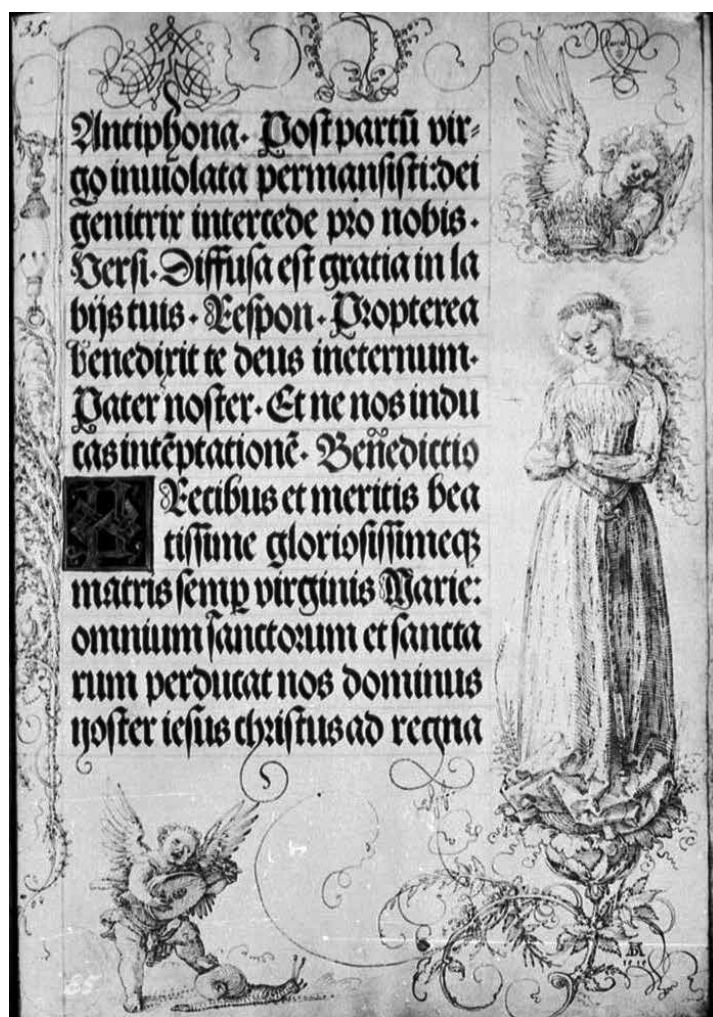 35.
Antiphona. Post partū vir-
go inuiolata permansisti: dei
genitrix intercede pro nobis.
Versi. Diffusa est gratia in la
bijs tuis. Respon. Propterea
benedixit te deus ineternum.
Pater noster. Et ne nos indu
cas intēptationē. Bene͂dictio
Precibus et meritis bea
tissime gloriosissimeqꝫ
matris semꝑ virginis Marie:
omnium sanctorum et sancta
rum perducat nos dominus
noster iesus christus ad regna
35